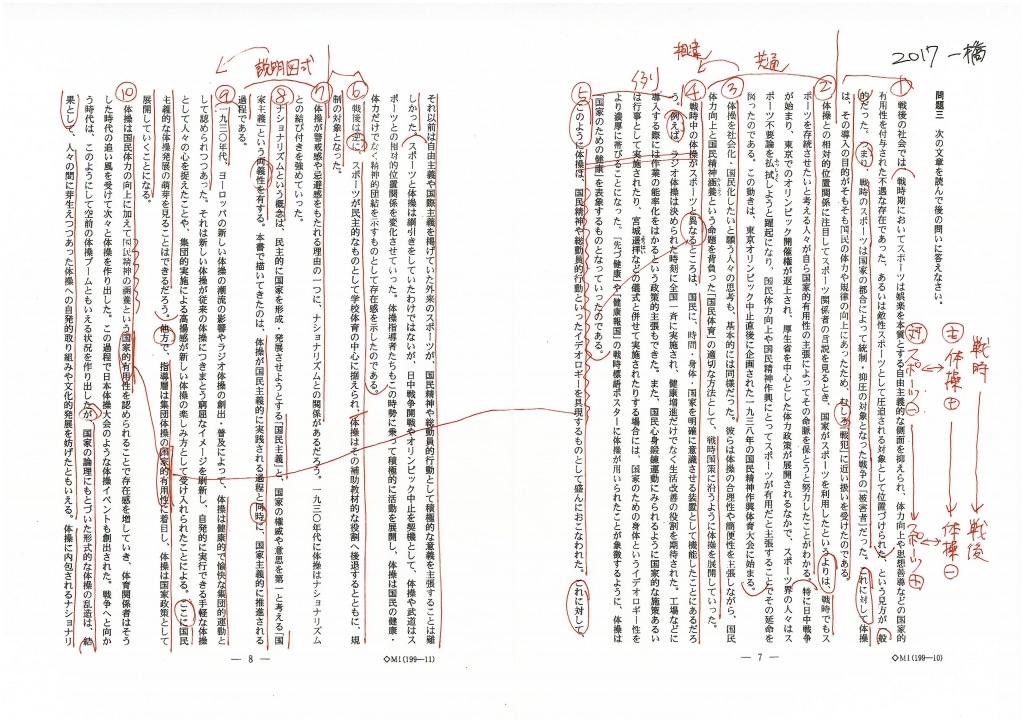 2017 一橋
問題三 次の文章を読んで後の問いに答えなさい。
戦後の社会では、戦時期においてスポーツは娯楽を本質とする自由主義的な側面を抑えられ、体力向上や思想善導などの国家的
有用性を付与された不遇な存在であった、あるいは敵性スポーツとして圧迫される対象として位置づけられた、という見方が一般
的だった。つまり、戦時のスポーツは国家の都合によって統制・抑圧の対象となった戦争の「被害者」だった。これに対して体操
は、その導入の目的がそもそも国民の体力や規律の向上にあったため、むしろ「戦犯」に近い扱いを受けたのである。
体操との相対的位置関係に注目してスポーツ関係者の言説を見るとき、国家がスポーツを利用したというよりは、戦時でもス
ポーツを存続させたいと考える人々が自ら国家的有用性の主張によってその命脈を保とうと努力したことがわかる。特に日中戦争
が始まり、東京でのオリンピック開催権が返上され、厚生省を中心とした体力政策が展開されるなかで、スポーツ界の人々はス
ポーツ不要論を払拭しようと躍起になり、国民体力向上や国民精神作興にとってスポーツが有用だと主張することでその延命を
図ったのである。この動きは、東京オリンピック中止直後に企画された一九三八年の国民精神作興体育大会に始まる。
体操を社会化・国民化したいと願う人々の思考も、基本的には同様だった。彼らは体操の合理性や簡便性を主張しながら、国民
体力向上と国民精神涵養という命題を背負った「国民体育」の適切な方法として、戦時国策に沿うように体操を展開していった。
戦時中の体操がスポーツと異なるところは、国民に、時間・身体・国家を明確に意識させる装置として機能したことにあるだろ
う。例えば、ラジオ体操は決められた時刻に全国一斉に実施され、健康増進だけでなく生活改善の役割を期待された。工場などに
導入する際には作業の能率化をはかるという政策的主張もできた。また、国民心身鍛錬運動にみられるように国家的な施策あるい
は行事として実施されたり、宮城遥拝などの儀式と併せて実施されたりする場合には、国家のための身体というイデオロギー性を
より濃厚に帯びることになった。「先づ健康」や「健康報国」の戦時標語ポスターに体操が用いられたことが象徴するように、体操は
「国家のための健康」を表象するものとなっていったのである。
このように体操は、国民精神や総動員的行動といったイデオロギーを具現するものとして盛んにおこなわれた。これに対して、
① ② ③ ④ ⑤
共通
相違
対
戦時
戦後
体操 ⊕
スポーツ ⊖
体操 ⊖
スポーツ ⊕
— 7 —
◇M1(199—10)
それ以前は自由主義や国際主義を掲げていた外来のスポーツが、国民精神や総動員的行動として積極的な意義を主張することは難
しかった。スポーツと体操は綱引きをしていたわけではないが、日中戦争開戦やオリンピック中止を契機として、体操や武道はス
ポーツとの相対的位置関係を変化させていった。体操指導者たちもこの時勢に乗って積極的に活動を展開し、体操は国民の健康・
体力だけでなく精神的団結を示すものとして存在感を示したのである。
戦後は逆に、スポーツが民主的なものとして学校体育の中心に据えられ、体操はその補助教材的な役割へ後退するとともに、規
制の対象となった。
体操が警戒感や忌避感をもたれる理由の一つに、ナショナリズムとの関係があるだろう。一九三〇年代に体操はナショナリズム
との結び付きを強めていった。
ナショナリズムという概念は、民主的に国家を形成・発展させようとする「国民主義」と、国家の権威や意思を第一と考える「国
家主義」という両義性を有する。本書で描いてきたのは、体操が国民主義的に実践される過程と同時に、国家主義的に推進される
過程である。
一九三〇年代、ヨーロッパの新しい体操の潮流の影響やラジオ体操の創出・普及によって、体操は健康的で愉快な集団的運動と
して認められつつあった。それは新しい体操が従来の体操につきまとう窮屈なイメージを刷新し、自発的に実行できる手軽な体操
として人々の心を捉えたことや、集団的実施による高揚感が新しい体操の楽しみ方として受け入れられたことによる。ここに国民
主義的な体操発展の萌芽を見ることはできるだろう。他方で、指導層は集団体操の国家的有用性に着目し、体操は国家政策として
展開していくことになる。
体操は国民体力の向上に加えて国民精神の涵養という国家的有用性を認められることで存在感を増していき、体育関係者はそう
した時代の追い風を受けて次々と体操を作り出した。この過程で日本体操大会のような体操イベントも創出された。戦争へと向か
う時代は、このようにして空前の体操ブームともいえる状況を作り出したが、国家の論理にもとづいた形式的な体操の乱造は、結
果として、人々の間に芽生えつつあった体操への自発的取り組みや文化的発展を妨げたともいえる。体操に内包されるナショナリ
⑥ ⑦ ⑧ ⑨ ⑩
説明図式
— 8 —
◇M1(199—11)